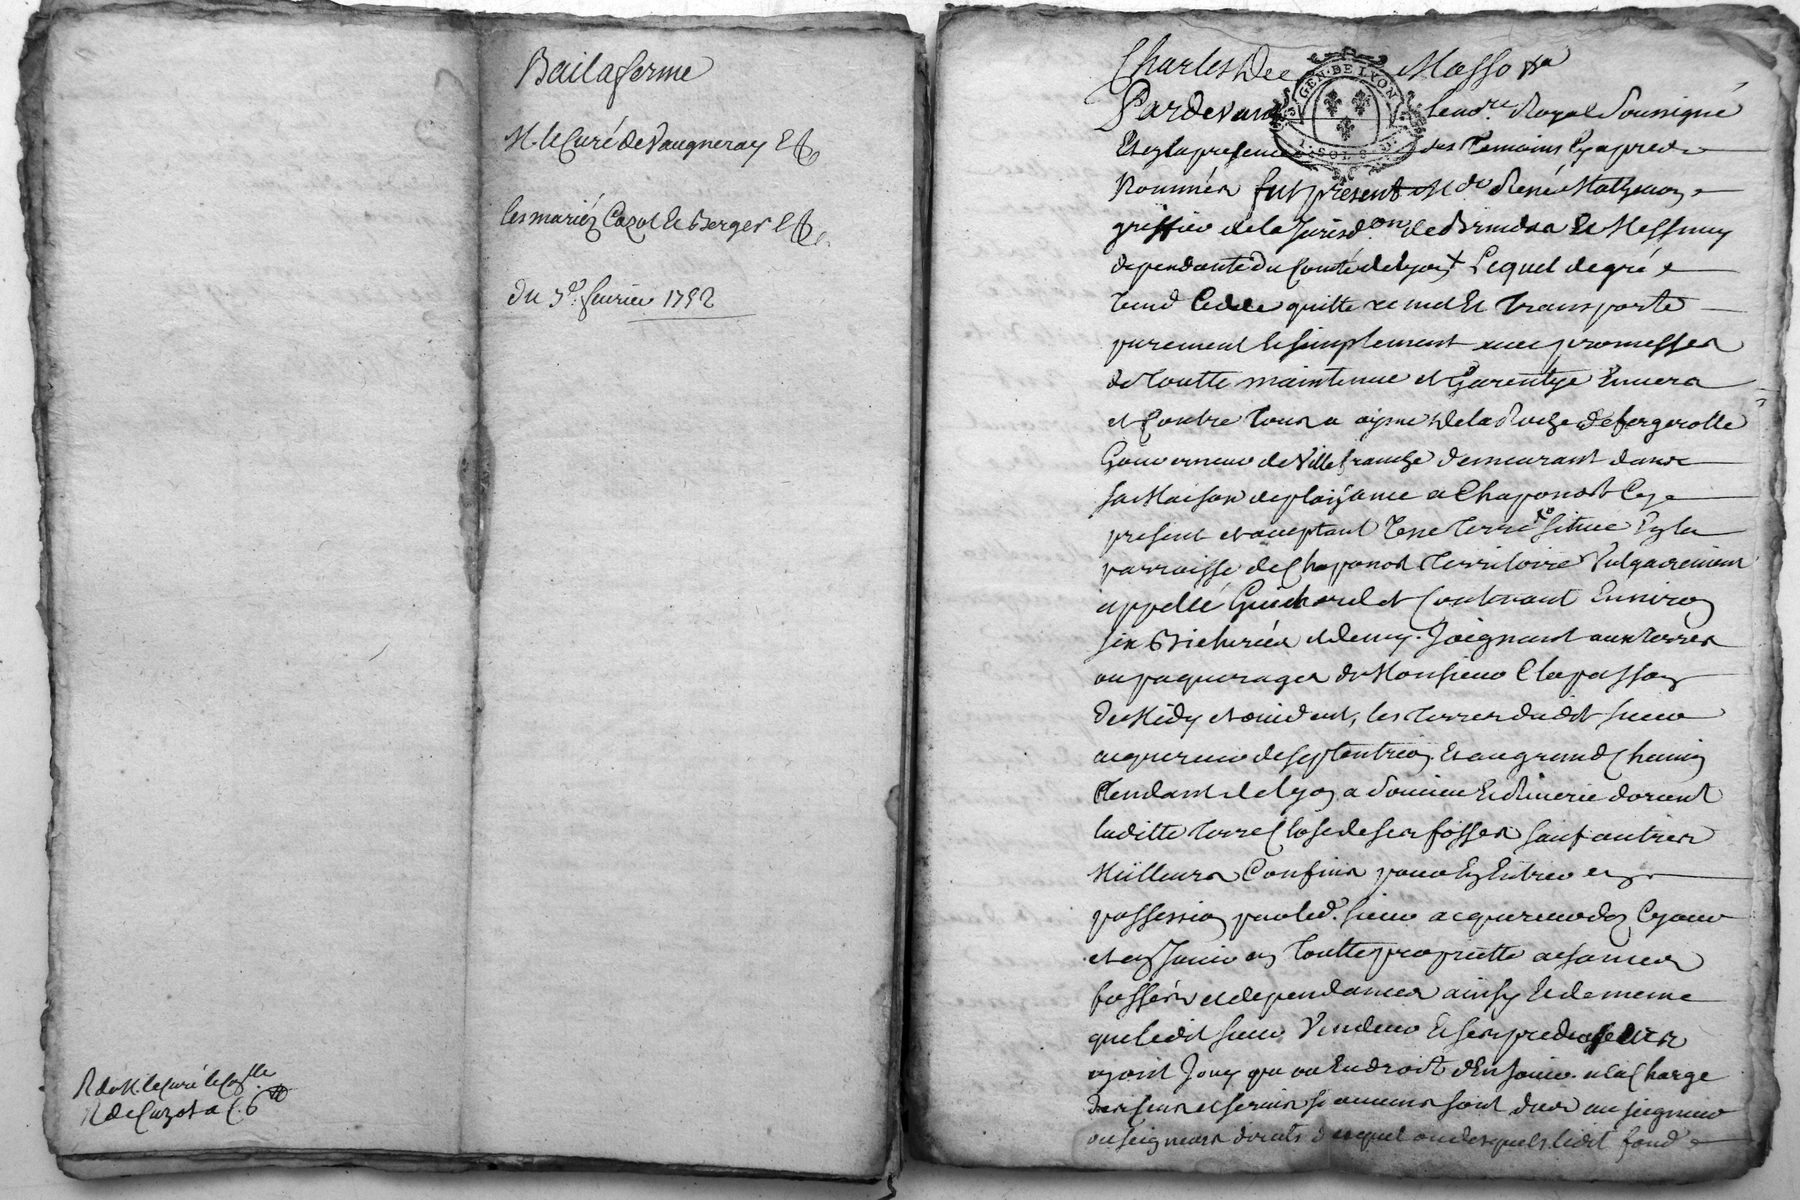 Bail a ferme
M. le Curé de Vaugneray &
les mariéz Cazot le Berger &
du 7e. fevrier 1752
R de M. le Curé
R de Cazot a
GEN. DE LYON
SOLS
Charles De Masso
Pardevant le no.re Royal Soussigné
Et en la presence des Temoins cy apres
Nommés fut present René
greffier de la Jurisd.on de Brindas et Messimy
dependante du Comté de Lyon Lequel de gré
Vend Cedde quitte remet Et Transporte
purement et simplement avec promesses
de Toutte maintenue et Garentye Envers
et Contre Tous a aymé De la Roche de fergerolle
Gouverneur de Villefranche demeurant dans
sa Maison de plaizance a Chaponost Cy
present et acceptant Une Terre située En la
parroisse de Chaponost Territoire Vulgairement
appellé Guichard et Contenant Environ
six Bicherées et demy. Joignant aux Terres
ou paquerages de Monsieur Clapasson
de Midy et occident, les Terres dudit sieur
acquereur de septentrion Et au grand Chemin
Tendant de Lyon a Soucieu Et Riverie d'orient
laditte Terre Close de ses fossés sauf autres
Meilleurs Confins pour En Entrer en
possession par led. sieur acquereur dez Ce jour
et en Jouir en Toutte proprietté aisances
fossés et dependances ainsy et de meme
que ledit sieur Vendeur Et ses predecesseurs
ayant Jouy que ou Eu droit d'En Jouir. a la Charge
des Cens et servis si aucuns sont dus au seigneur
ou seigneurs directs duquel ou desquels ledit fond